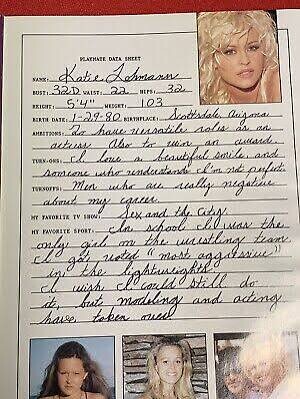 PLAYMATE DATA SHEET
NAME: Katie Lohmann
BUST: 32D WAIST: 22 HIPS: 32
HEIGHT: 5'4" WEIGHT: 103
BIRTH DATE: 1-29-80 BIRTHPLACE: Scottsdale, Arizona
AMBITIONS: To have versatile roles as an
actress. Also to win an award.
TURN-ONS: I love a beautiful smile, and
someone who understands I'm not perfect.
TURNOFFS: Men who are really negative
about my career.
MY FAVORITE TV SHOW: Sex and the City.
MY FAVORITE SPORT: In school I was the
only girl on the wrestling team
I got voted "most aggressive"
in the lightweights.
I wish I could still do
it, but modeling and acting
have taken over.